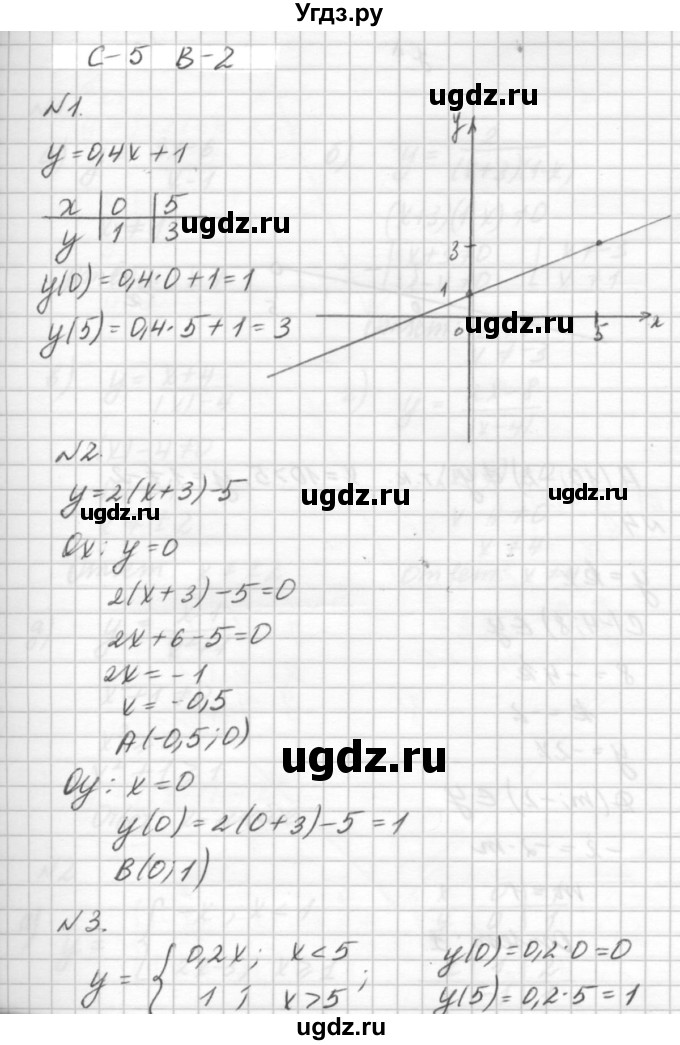 Угдз.ру
С-5 В-2
ugdz.ru
№1.
y=0,4x+1
x | 0 | 5
y | 1 | 3
ugdz.ru
y(0)=0,4·0+1=1
y(5)=0,4·5+1=3
y
3
1
0
5
x
ugdz.ru
№2.
y=2(x+3)-5
ugdz.ru
ugdz.ru
ugdz.ru
Ox: y=0
2(x+3)-5=0
2x+6-5=0
2x=-1
x=-0,5
A(-0,5;0)
ugdz.ru
Oy: x=0
y(0)=2(0+3)-5=1
B(0;1)
№3.
y= { 0,2x; x<5
1; x>5 ;
y(0)=0,2·0=0
y(5)=0,2·5=1
ugdz.ru